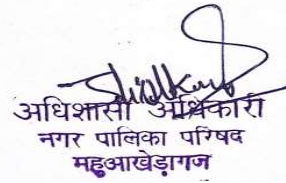 अधिशासी अधिकारी
नगर पालिका परिषद
महुआखेड़ागंज